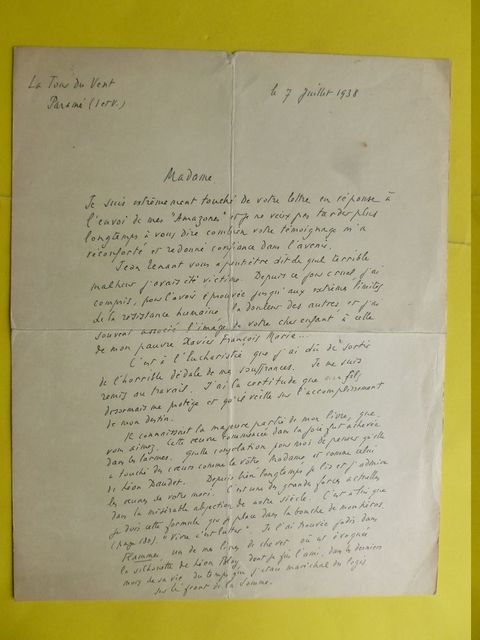 La Tour du Vent
Paramé (I et V.)
le 7 Juillet 1938
Madame
Je suis extrêmement touché de votre lettre en réponse à
l'envoi de mes "Amazones" et je ne veux pas tarder plus
longtemps à vous dire combien votre témoignage m'a
réconforté et redonné confiance dans l'avenir.
Jean vous a peut-être dit de quel terrible
malheur j'avais été victime. Depuis ce jour cruel j'ai
compris, pour l'avoir éprouvée jusqu'aux extrême limites
de la résistance humaine, la douleur des autres et j'ai
souvent associé l'image de votre cher enfant à celle
de mon pauvre Xavier François Marie...
C'est à l'Eucharistie que j'ai dû de sortir
de l'horrible dédale de mes souffrances. Je me suis
remis au travail. J'ai la certitude que mon fils
désormais me protège et qu'il veille sur l'accomplissement
de mon destin.
Il connaissait la majeure partie de mon livre, que
vous aimez. Cette œuvre commencée dans la joie fut achevée
dans les larmes. Quelle consolation pour moi de penser qu'elle
a touché des cœurs comme le vôtre Madame et comme celui
de Léon Daudet. Depuis bien longtemps je lis et j'admire
les œuvres de votre mari. C'est une des grandes forces actuelles
dans la misérable abjection de notre siècle. C'est à lui que
je dois cette formule que je place dans la bouche de mon héros
(page 180). "Vivre c'est lutter". Je l'ai trouvée jadis dans
Flammes, un de mes livres de chevet où est évoquée
la silhouette de Léon Bloy, dont je fus l'ami, dans les derniers
mois de sa vie, du temps que j'étais maréchal des logis
sur le front de la Somme.